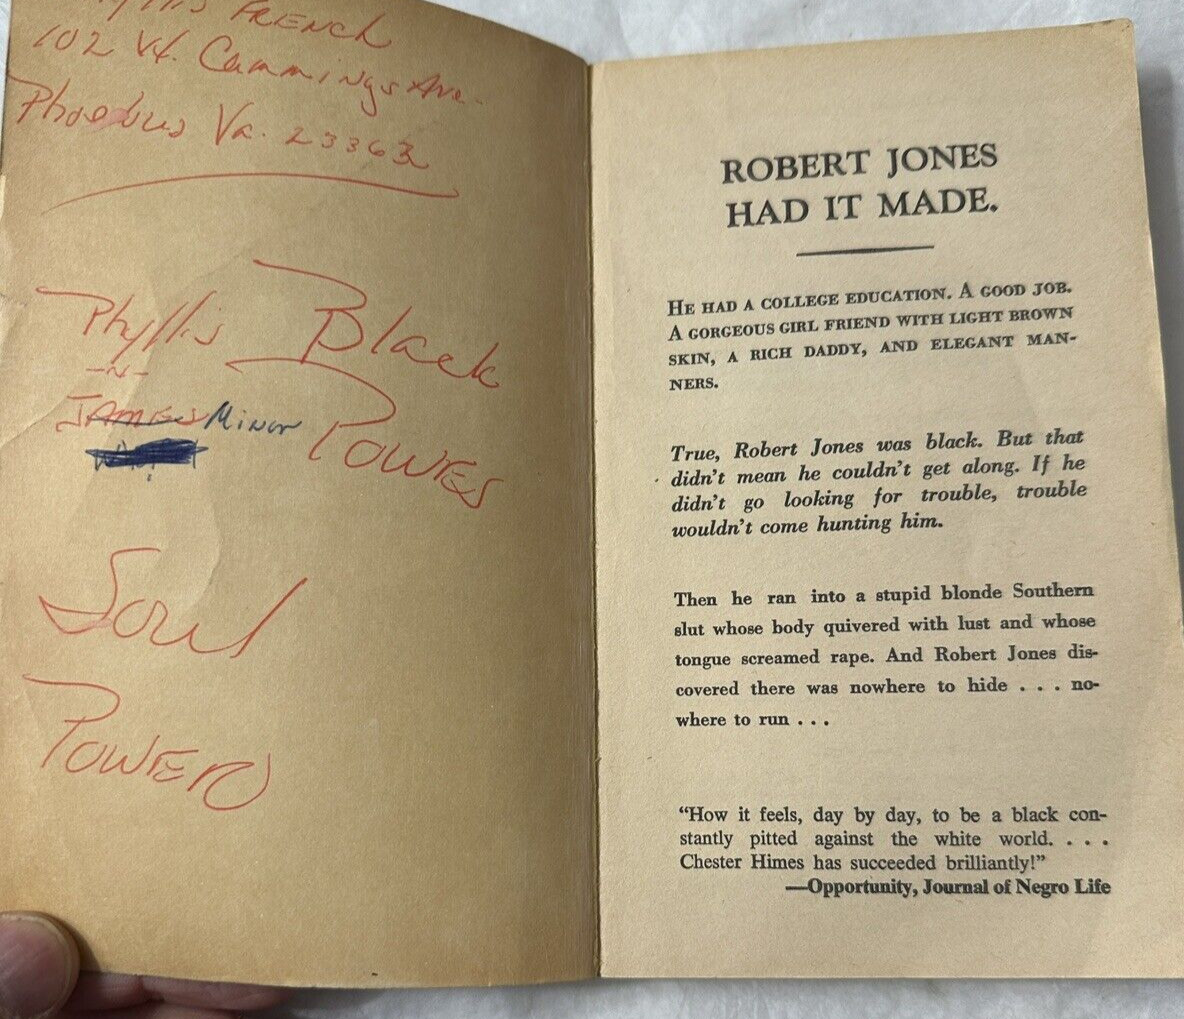 French
102 W. Cummings Ave.
Phoebus Va. 23363
Phyllis
-N-
James Minor
Black
Power
Soul
Power
ROBERT JONES
HAD IT MADE.
HE HAD A COLLEGE EDUCATION. A GOOD JOB.
A GORGEOUS GIRL FRIEND WITH LIGHT BROWN
SKIN, A RICH DADDY, AND ELEGANT MAN-
NERS.
True, Robert Jones was black. But that
didn't mean he couldn't get along. If he
didn't go looking for trouble, trouble
wouldn't come hunting him.
Then he ran into a stupid blonde Southern
slut whose body quivered with lust and whose
tongue screamed rape. And Robert Jones dis-
covered there was nowhere to hide . . . no-
where to run . . .
“How it feels, day by day, to be a black con-
stantly pitted against the white world. . . .
Chester Himes has succeeded brilliantly!”
—Opportunity, Journal of Negro Life